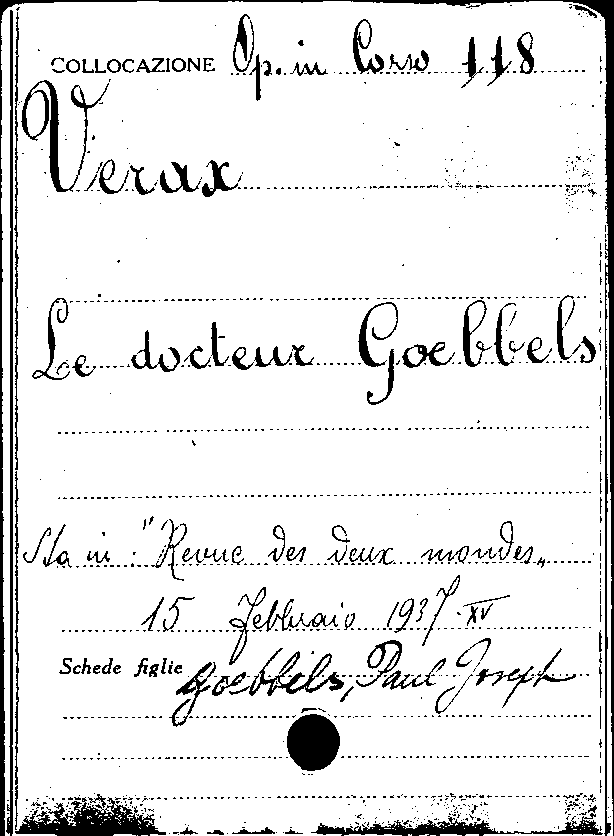 COLLOCAZIONE Op. in Corso 118
Verax
Le docteur Goebbels
Sta in: "Revue des deux mondes„
15 Febbraio 1937-XV
Schede figlie Goebbels, Paul Joseph